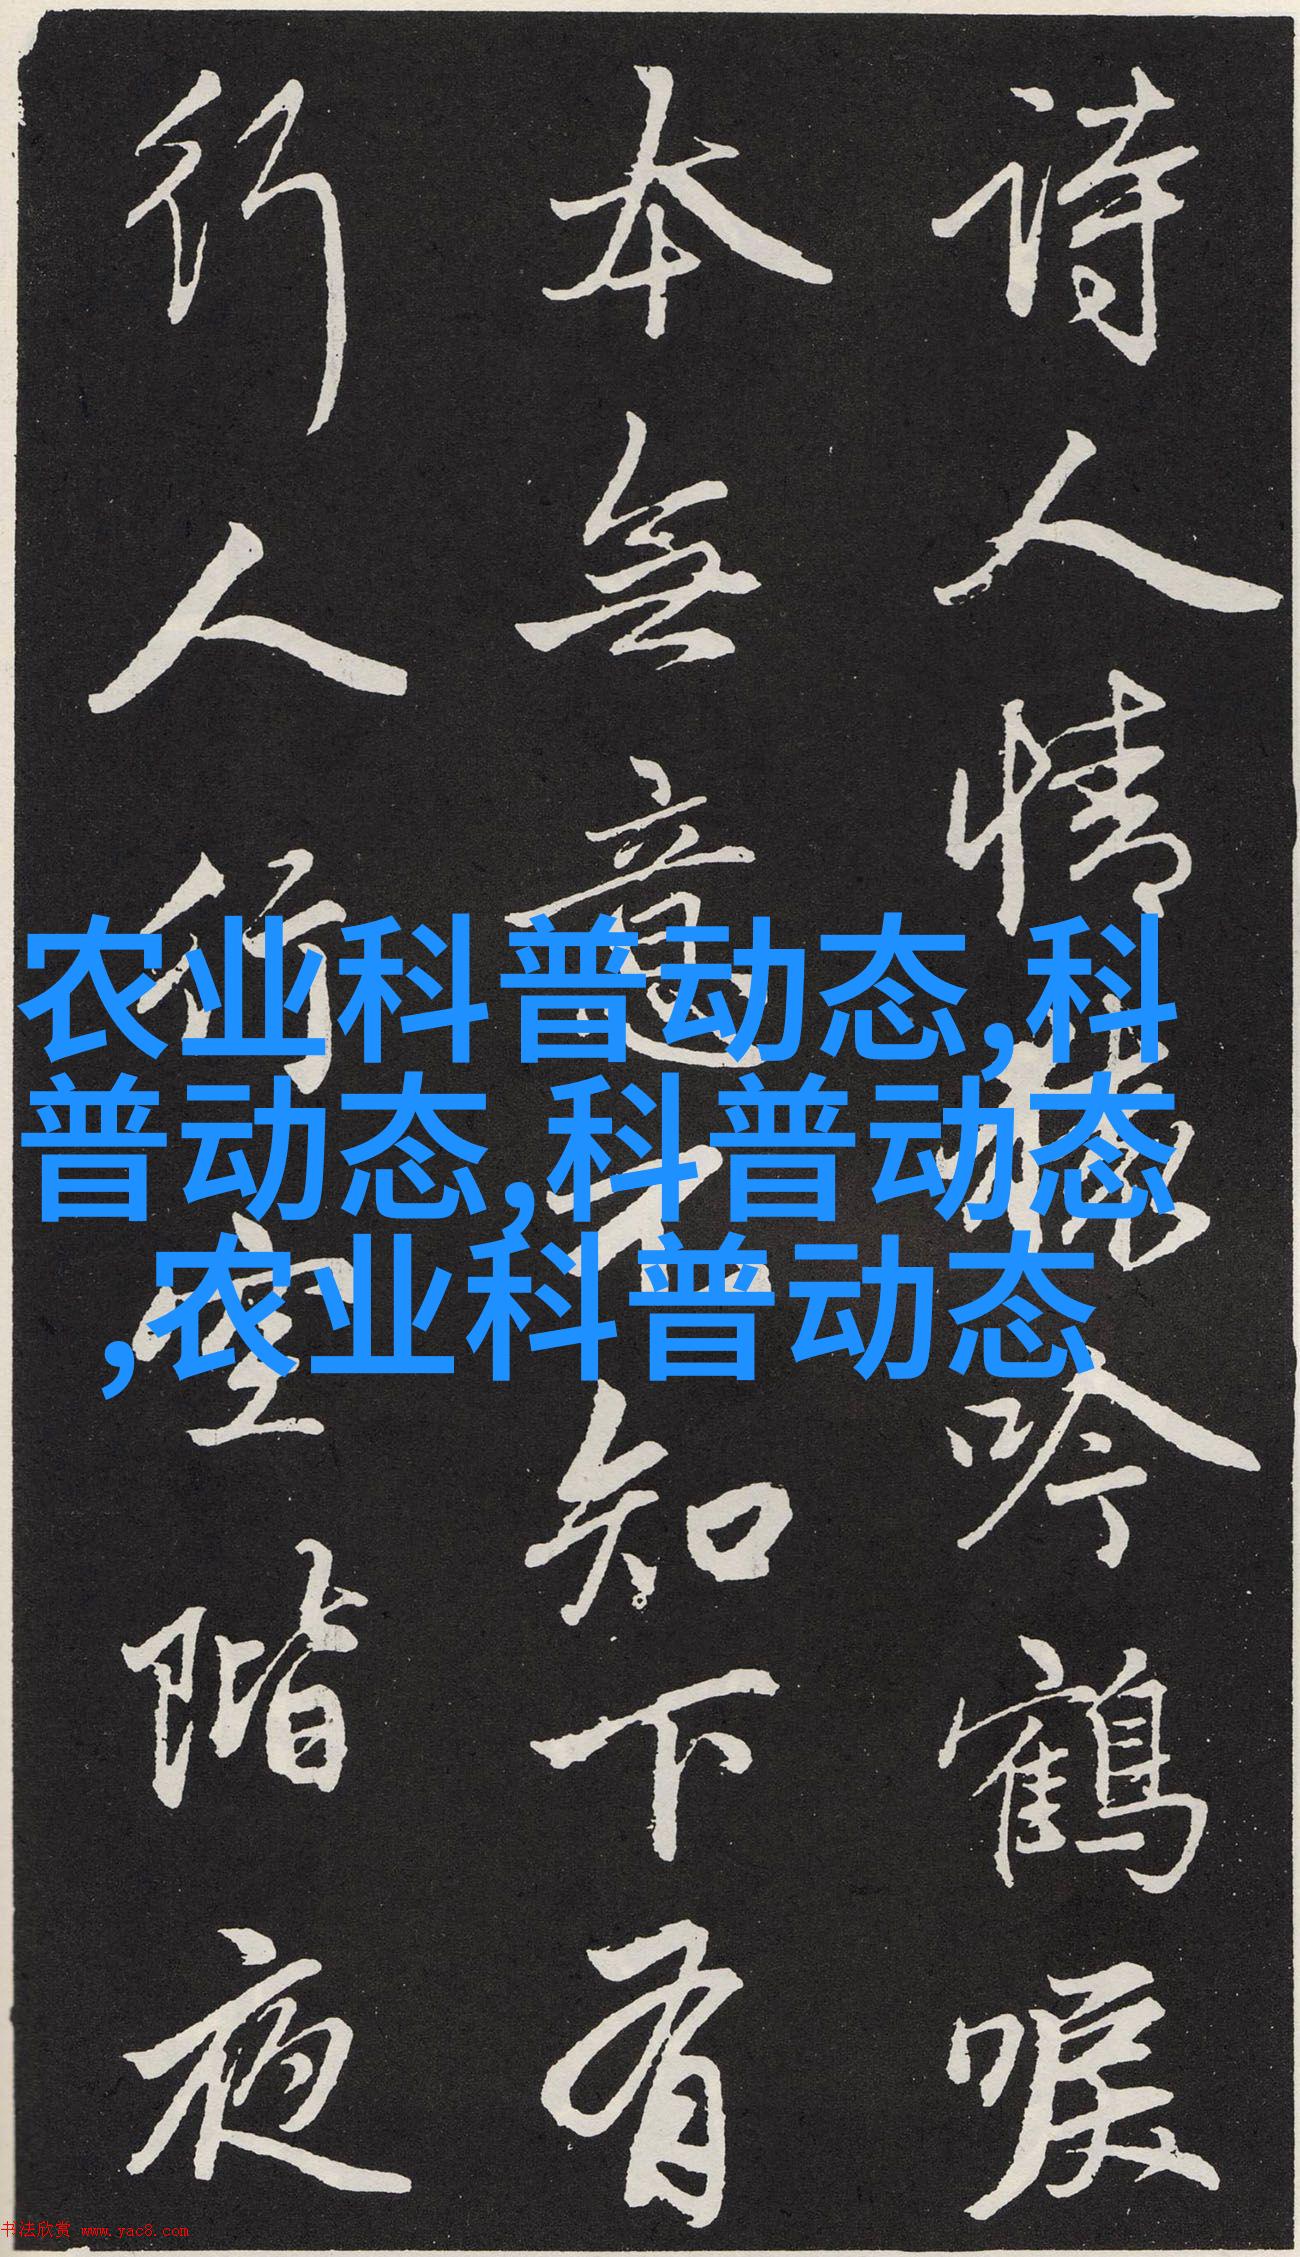 诗人情猿吟鹤唳
本无意不知下有
行人行空阶夜
农业科普动态,科
普动态,科普动态
,农业科普动态
书法欣赏 www.yac8.com